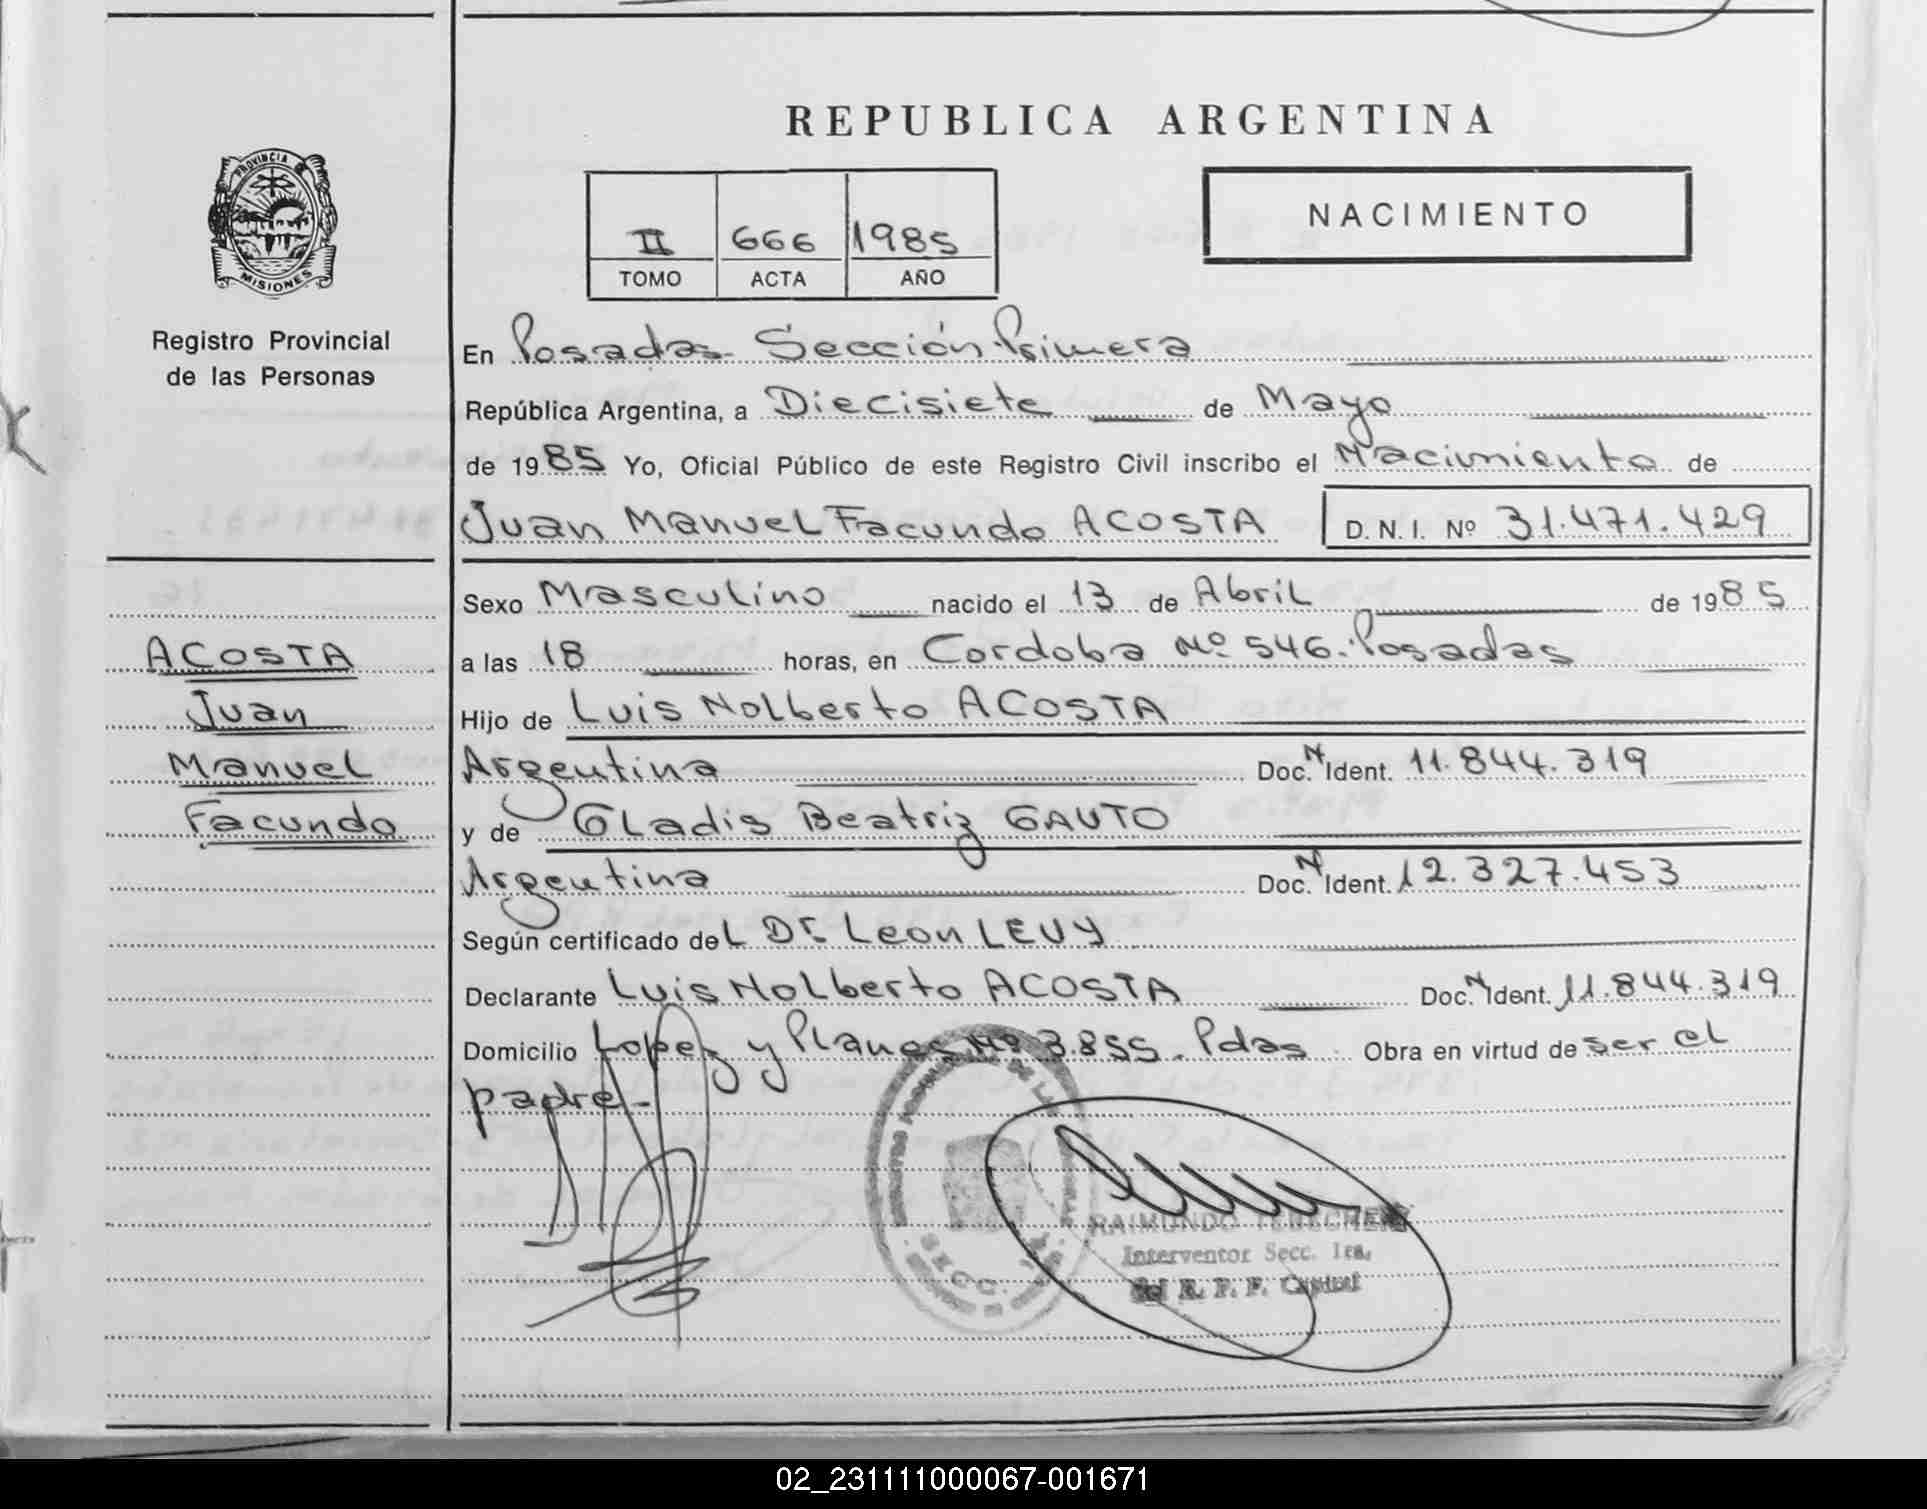 REPUBLICA ARGENTINA
PROVINCIA
MISIONES
Registro Provincial
de las Personas
II 666 1985
TOMO ACTA AÑO
NACIMIENTO
En Posadas - Sección Primera
República Argentina, a Diecisiete de Mayo
de 1985 Yo, Oficial Público de este Registro Civil inscribo el Nacimiento de
Juan Manuel Facundo ACOSTA D. N. I. Nº 31.471.429
ACOSTA
Juan
Manuel
Facundo
Sexo Masculino nacido el 13 de Abril de 1985
a las 18 horas, en Cordoba Nº 546. Posadas
Hijo de Luis Nolberto ACOSTA
Argentina Doc. N Ident. 11.844.319
y de Gladis Beatriz GAUTO
Argentina Doc. N Ident. 12.327.453
Según certificado del Dr. Leon LEVY
Declarante Luis Nolberto ACOSTA Doc. N Ident. 11.844.319
Domicilio Lopez y Planes Nº 3.855. Pdas Obra en virtud de ser el
padre -
SECC. 1ª
RAIMUNDO
Interventor Secc. 1ra.
del R. P. P. Capital
02_231111000067-001671